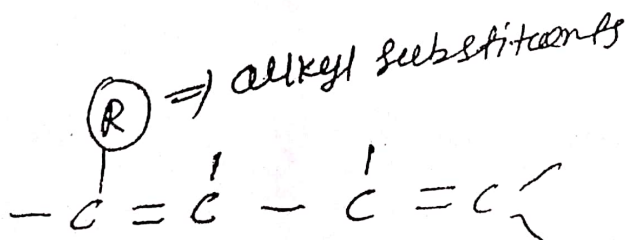 R ⇒ alkyl substituents
— C = C — C = C